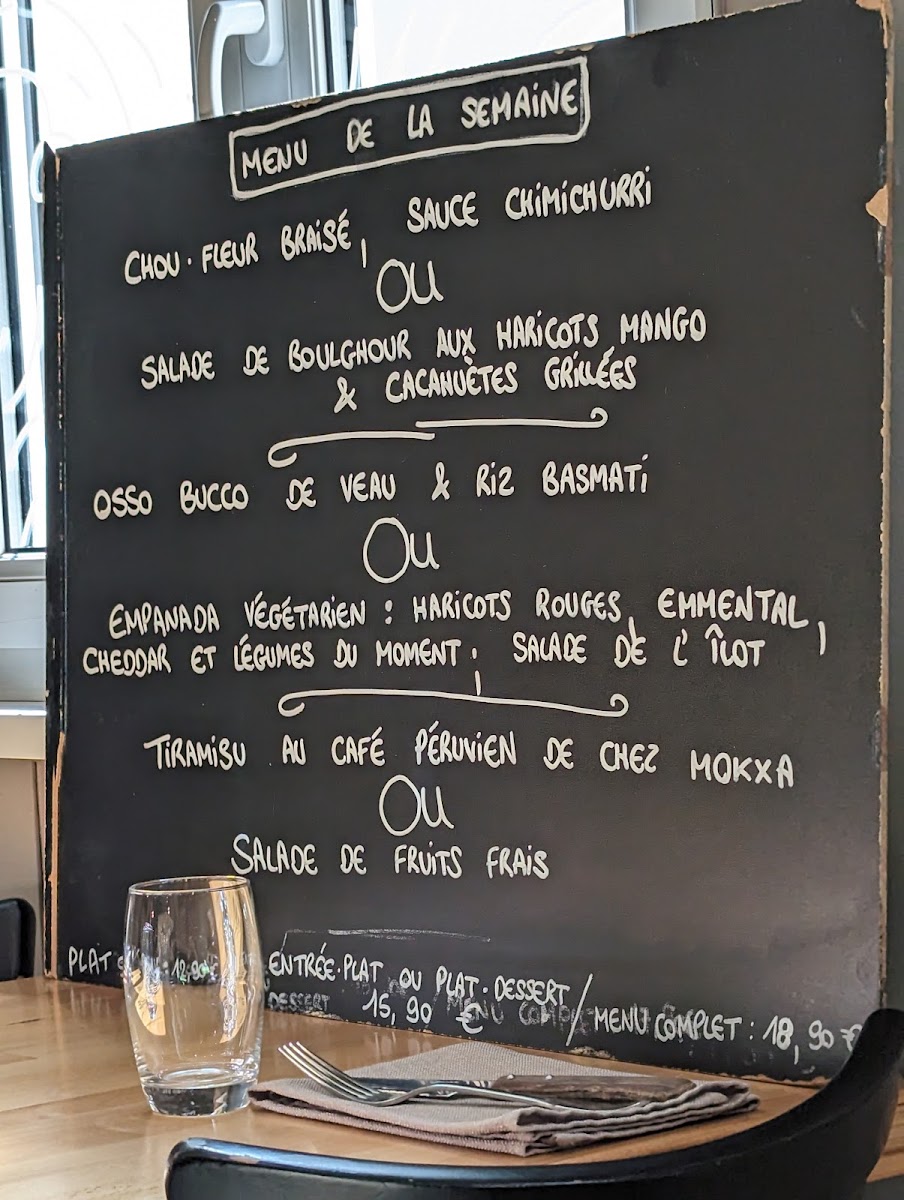 MENU DE LA SEMAINE
CHOU-FLEUR BRAISÉ, SAUCE CHIMICHURRI
OU
SALADE DE BOULGHOUR AUX HARICOTS MANGO
& CACAHUÈTES GRILLÉES
OSSO BUCCO DE VEAU & RIZ BASMATI
OU
EMPANADA VÉGÉTARIEN : HARICOTS ROUGES, EMMENTAL,
CHEDDAR ET LÉGUMES DU MOMENT ; SALADE DE L'ÎLOT
TIRAMISU AU CAFÉ PÉRUVIEN DE CHEZ MOKXA
OU
SALADE DE FRUITS FRAIS
PLAT : 12,90€
ENTRÉE-PLAT OU PLAT-DESSERT /
DESSERT 15,90 € / MENU COMPLET : 18,90 €